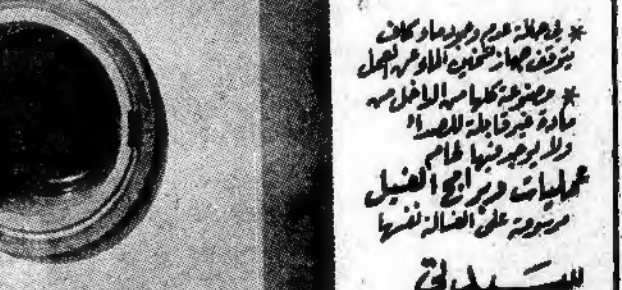 * في حالة عدم وجود ماء كاف
يتوقف جهاز تسخين الماء عن العمل
* مصنوعة كلها من الداخل من
مادة غير قابلة للصدأ
ولا يوجد فيها لحام
عمليات وبرامج الغسيل
مرسومة على الغسالة نفسها